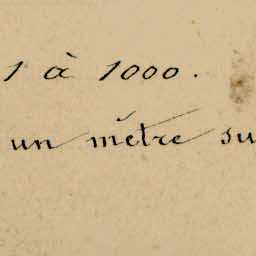 1 à 1000.
un mètre su